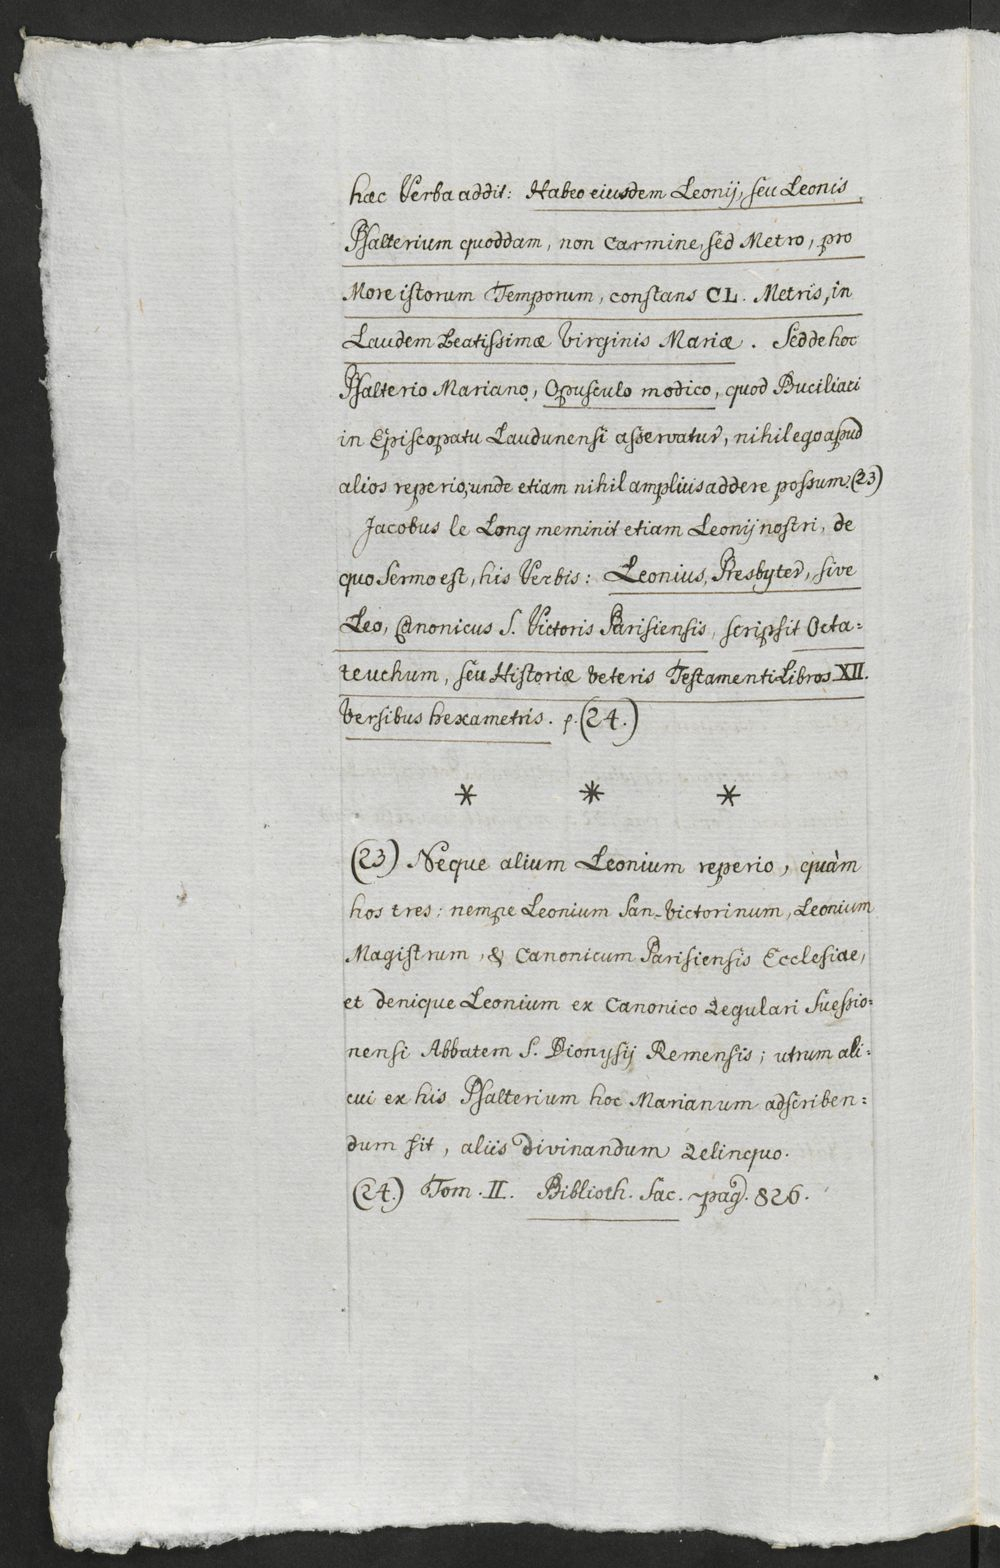 hæc Verba addit: Habeo eiusdem Leonij, seu Leonis
Psalterium quoddam, non Carmine, sed Metro, pro
More istorum Temporum, constans CL. Metris, in
Laudem Beatissimæ Virginis Mariæ. Sed de hoc
Psalterio Mariano, Opusculo modico, quod Buciliaci
in Episcopatu Laudunensi asservatur, nihil ego apud
alios reperio; unde etiam nihil amplius addere possum. (23)
Jacobus le Long meminit etiam Leonij nostri, de
quo Sermo est, his Verbis: Leonius, Presbyter, sive
Leo, Canonicus S. Victoris Parisiensis, scripsit Octa=
teuchum, seu Historiæ Veteris Testamenti Libros XII.
Versibus hexametris. (24.)
* * *
(23) Neque alium Leonium reperio, quàm
hos tres: nempe Leonium San-Victorinum, Leonium
Magistrum, & Canonicum Parisiensis Ecclesiae,
et denique Leonium ex Canonico Regulari Suessio=
nensi Abbatem S. Dionysij Remensis; utrum ali=
cui ex his Psalterium hoc Marianum adscriben=
dum sit, aliis divinandum relinquo.
(24) Tom. II. Biblioth. Sac. pag. 826.